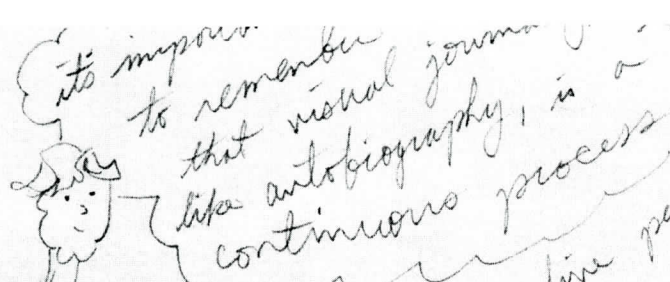 its
to remember
that visual
like autobiography, is a
continuous process